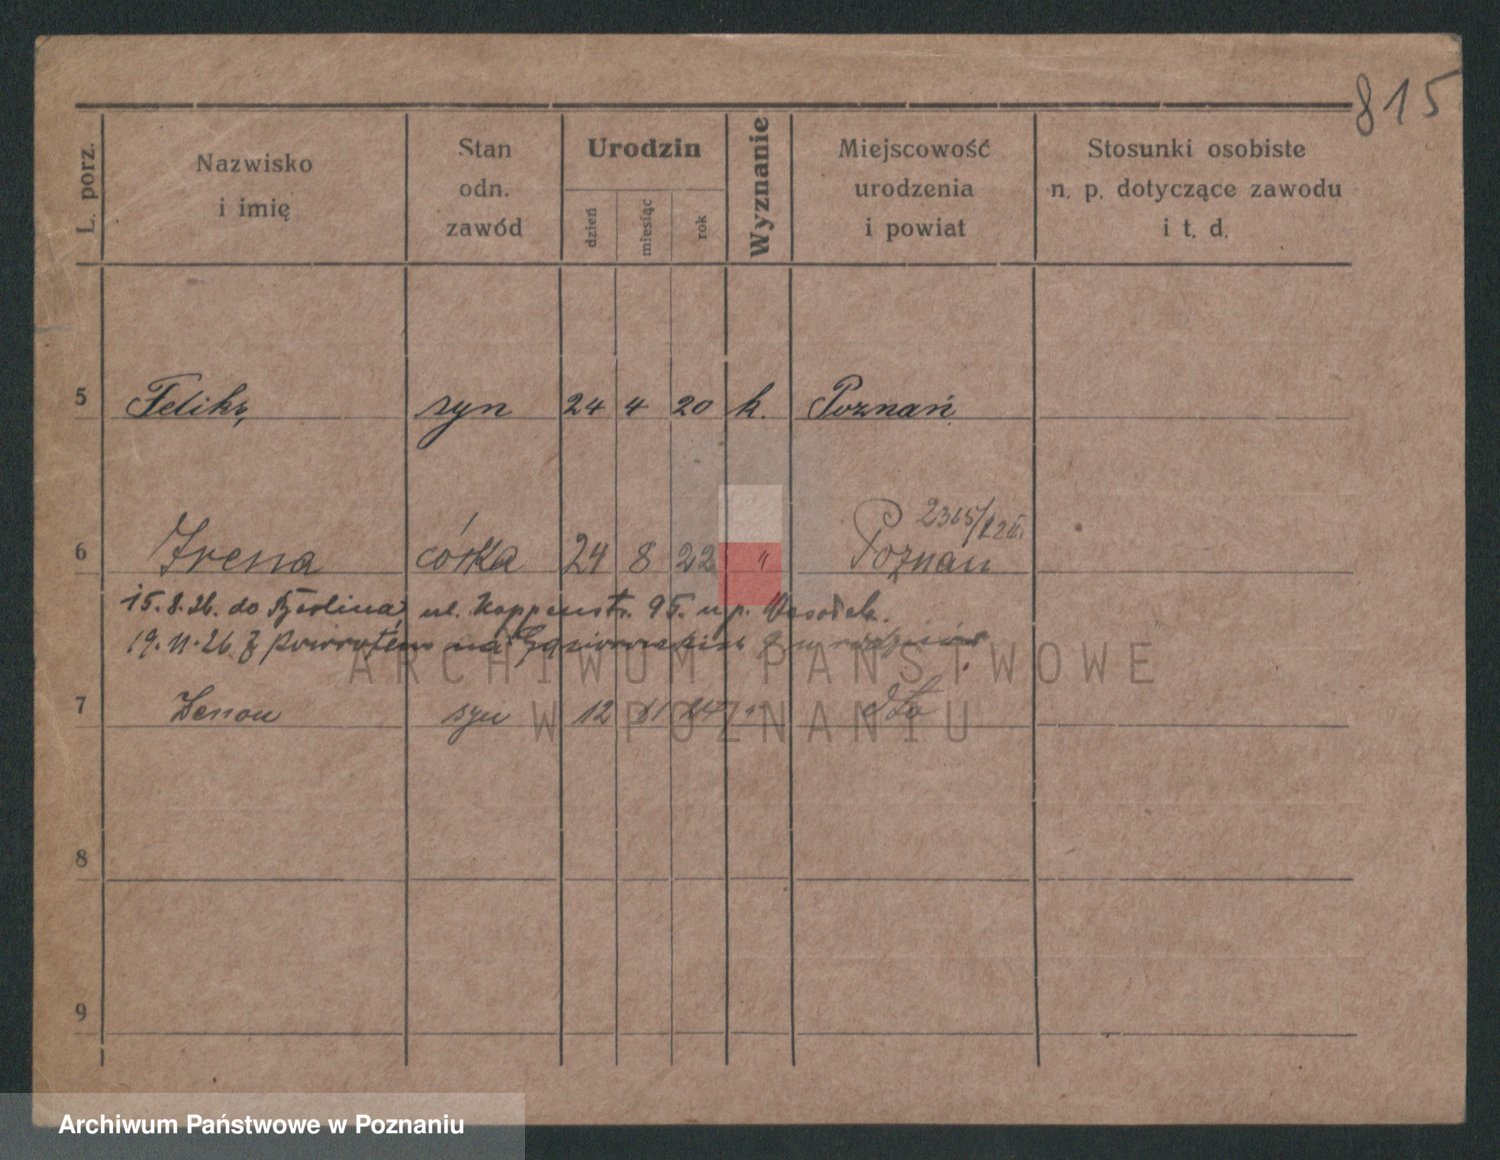 815
L. porz.
Nazwisko
i imię
Stan
odn.
zawód
Urodzin
dzień
miesiąc
rok
Wyznanie
Miejscowość
urodzenia
i powiat
Stosunki osobiste
n. p. dotyczące zawodu
i t. d.
5 Feliks syn 24 4 20 k. Poznań
6 Irena córka 24 8 22 " Poznań
15.8.26. do Berlina, ul. Koppenstr. 95.
19.11.26 z powrotem na
7 Zenon syn 12 11 24 " dto
8
9
ARCHIWUM PAŃSTWOWE
W POZNANIU
Archiwum Państwowe w Poznaniu